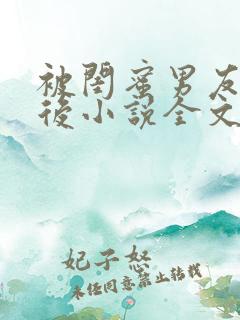 被閨蜜男友
後小說全文
妃子怒
未任同意禁止转载